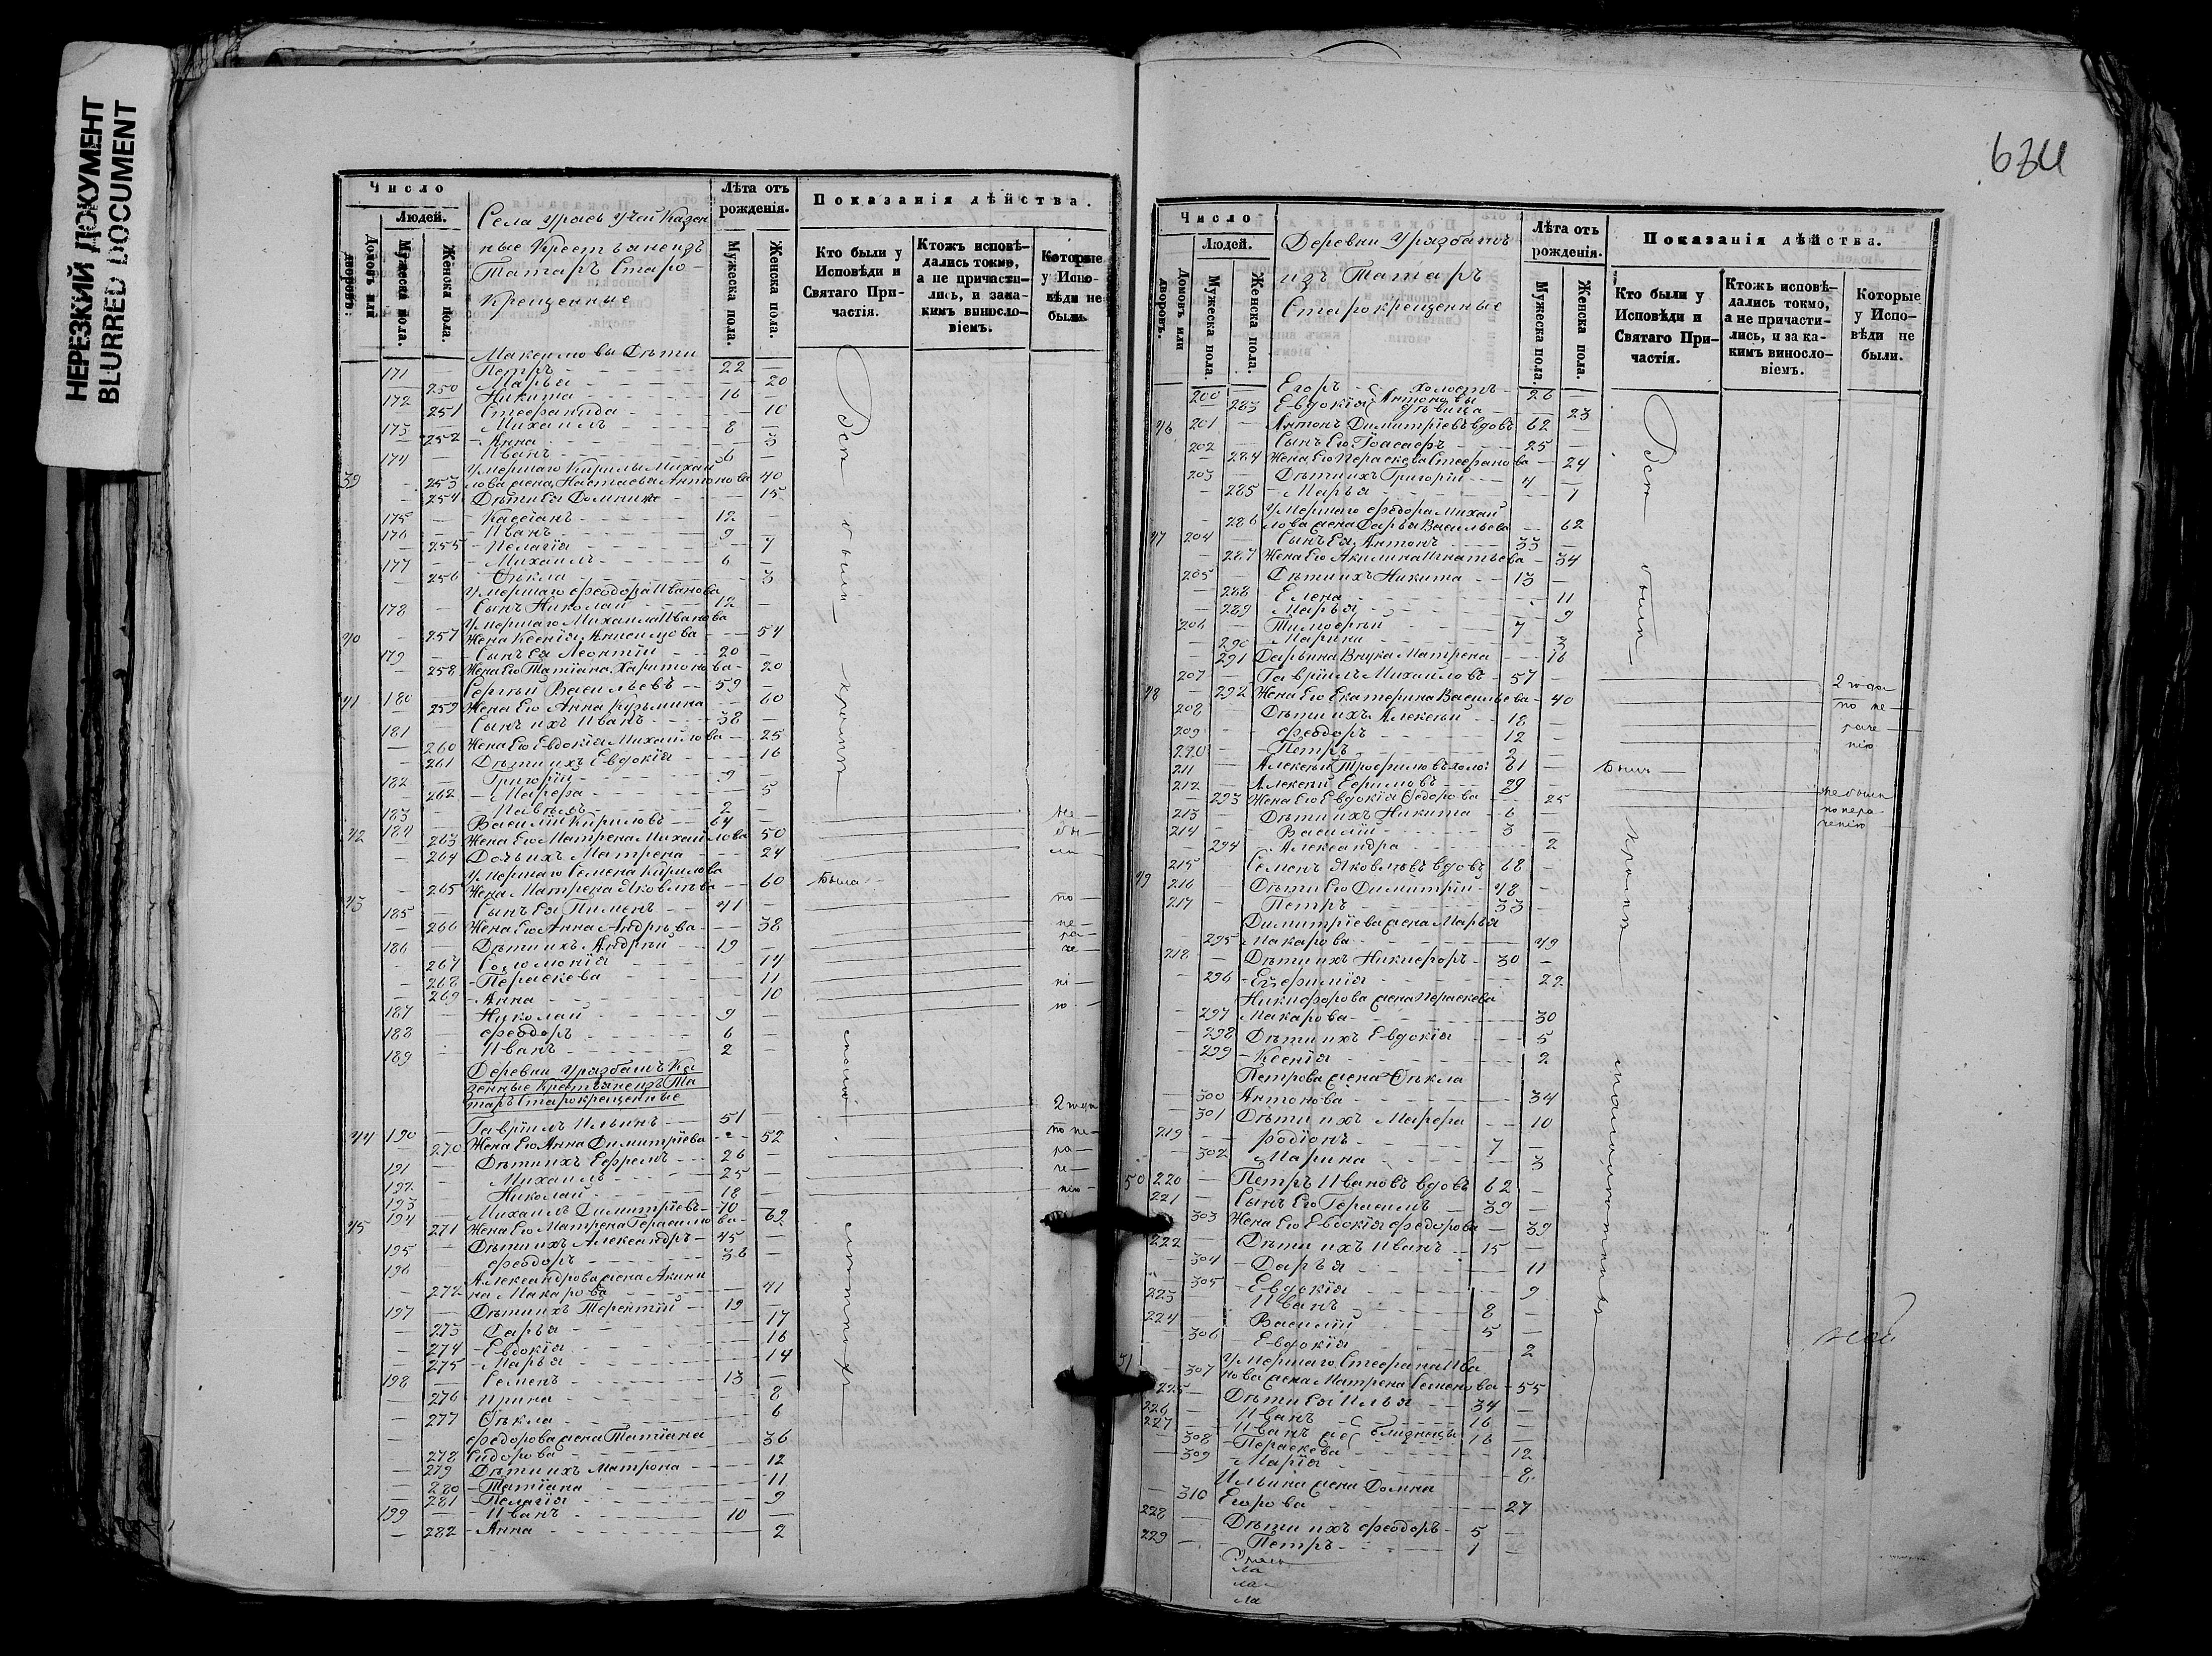 НЕРЕЗКИЙ ДОКУМЕНТ
BLURRED DOCUMENT
Число
Людей.
Домовъ или дворовъ.
Мужеска пола.
Женска пола.
Села Ураев Учай Казен
ные Крестьяне изъ
Татаръ Старо-
крещенные
Лѣта отъ рожденія.
Мужеска пола.
Женска пола.
Показанія дѣйства.
Кто были у Исповѣди и Святаго Причастія.
Ктожъ исповѣдались токмо, а не причастились, и за какимъ винословіемъ.
Которые у Исповѣди не были.
Максимовы Дѣти
171 — Петръ 22 —
— 250 Марья — 20
172 — Никита 16 —
— 251 Стефанида — 10
173 — Михаилъ 8 —
— 252 Анна — 3
174 — Иванъ 6 —
Умершаго Кирилы Михай
39 — 253 лова жена Настасья Антонова 40
— 254 Дѣти Ея Домника — 15
175 — Кассіанъ 12 —
176 — Иванъ 9 —
— 255 Пелагія — 7
177 — Михаилъ 6 —
— 256 Ѳекла — 3
Умершаго Ѳеодора Иванова
178 — Сынъ Николай 12 —
Умершаго Михаила Иванова
40 — 257 Жена Ксенія Анисимова — 54
179 — Сынъ Ея Леонтій 20 —
— 258 Жена Его Татіана Харитонова — 20
41 180 — Сергѣй Васильевъ 59 —
— 259 Жена Его Анна Кузьмина — 60
181 — Сынъ ихъ Иванъ 38 —
— 260 Жена Его Евдокія Михайлова — 25
— 261 Дѣти ихъ Евдокія — 16
182 — Григорій 9 —
— 262 Марфа — 5
183 — Павелъ 2 —
42 184 — Василій Кириловъ 64 —
— 263 Жена Его Матрена Михайлова 50
— 264 Дочь ихъ Матрена — 24
Умершаго Семена Кирилова
— 265 Жена Матрена Яковлѣва — 60 Была
43 185 — Сынъ Ея Пименъ 41 —
— 266 Жена Его Анна Андрѣева — 38
186 — Дѣти ихъ Андрѣй 19 —
— 267 Соломонія — 14
— 268 Параскева — 11
— 269 Анна — 10
187 — Николай 9 —
188 — Ѳеодоръ 6 —
189 — Иванъ 2 —
Деревни Уразбашъ Ка
зенные Крестьяне изъ Та
таръ Старокрещенные
44 190 — Гавріилъ Ильинъ 51 —
— 270 Жена Его Анна Димитріева — 52
191 — Дѣти ихъ Ефремъ 26 —
192 — Михаилъ 25 —
193 — Николай 18 —
45 194 — Михаилъ Димитріевъ 70 —
271 Жена Его Матрена Герасимова — 62
195 — Дѣти ихъ Александръ 45 —
196 — Ѳеодоръ 36 —
Александрова жена Акили
— 272 на Макарова — 41
197 — Дѣти ихъ Терентій 19 —
— 273 Дарья — 17
— 274 Евдокія — 16
— 275 Марья — 14
198 — Семенъ 13 —
— 276 Ирина — 8
— 277 Ѳекла — 6
Ѳедорова жена Татіана
— 278 Сидорова — 36
— 279 Дѣти ихъ Матрона — 12
— 280 Татіана — 11
— 281 Пелагія — 9
199 — Иванъ 10 —
— 282 Анна — 2
Всѣ были кромѣ
не
бы
ли
по
не
ра
че
ні
ю
2 года
по не
ра
че
нію
Число
Людей.
Домовъ или дворовъ.
Мужеска пола.
Женска пола.
Деревни Уразбашъ
изъ Татаръ
Старокрещенные
Лѣта отъ рожденія.
Мужеска пола.
Женска пола.
Показанія дѣйства.
Кто были у Исповѣди и Святаго Причастія.
Ктожъ исповѣдались токмо, а не причастились, и за какимъ винословіемъ.
Которые у Исповѣди не были.
200 — Егоръ Антоновы холостъ 26 —
— 283 Евдокія дѣвица — 23
46 201 — Антонъ Димитріевъ вдовъ 62
202 — Сынъ Его Іоасафъ 25 —
— 284 Жена Его Параскева Стефанова — 24
203 — Дѣти ихъ Григорій 4 —
— 285 Марья — 1
Умершаго Ѳедора Михай
— 286 лова жена Дарья Васильева — 62
47 204 — Сынъ Ея Антонъ 33 —
— 287 Жена Его Акилина Игнатьева — 34
205 — Дѣти ихъ Никита 13 —
— 288 Елена — 11
— 289 Марья — 9
206 — Тимоѳей 7 —
— 290 Марина — 3
— 291 Дарьина Внука Матрена — 16
48 207 — Гавріилъ Михайловъ 57 —
— 292 Жена Его Екатерина Васильева — 40
208 — Дѣти ихъ Алексѣй 18 —
209 — Ѳеодоръ 12 —
210 — Петръ
211 — Алексѣй Трофимовъ холос 31 — Былъ
212 — Алексѣй Ефимовъ 29 —
— 293 Жена Его Евдокія Ѳедорова — 25
213 — Дѣти ихъ Никита 6 —
214 — Василій 3 —
— 294 Александра — 2
49 215 — Семенъ Яковлѣвъ вдовъ 68 —
216 — Дѣти Его Димитрій 48 —
217 — Петръ 33 —
Димитріева жена Марья
— 295 Макарова — 49
218 — Дѣти ихъ Никифоръ 30 —
— 296 Евфимія — 22
Никифорова жена Параскева
— 297 Макарова — 30
— 298 Дѣти ихъ Евдокія — 5
— 299 Ксенія — 2
Петрова жена Ѳекла
— 300 Антонова — 34
— 301 Дѣти ихъ Марфа — 10
219 — Родіонъ 7 —
— 302 Марина — 3
50 220 — Петръ Ивановъ вдовъ 62 —
221 — Сынъ Его Герасимъ 39 —
303 Жена Его Евдокія Ѳедорова — 39
222 — Дѣти ихъ Иванъ 15 —
— 304 Дарья — 11
— 305 Евдокія — 9
223 Иванъ 8 —
224 — Василій 5 —
— 306 Евдокія — 2
51 Умершаго Стефана Ива
— 307 нова жена Матрена Семенова — 55
225 — Дѣти Ея Илья 34 —
226 — Иванъ 16 —
227 — Иванъ же близнецы 16 —
— 308 Параскева — 12
— 309 Марія — 8
Ильина жена Домна
— 310 Егорова — 27
228 — Дѣти ихъ Ѳеодоръ 5 —
229 — Петръ 1 —
Всѣ были кромѣ
2 года
по не
раче
нію
не были
по нера
ченію